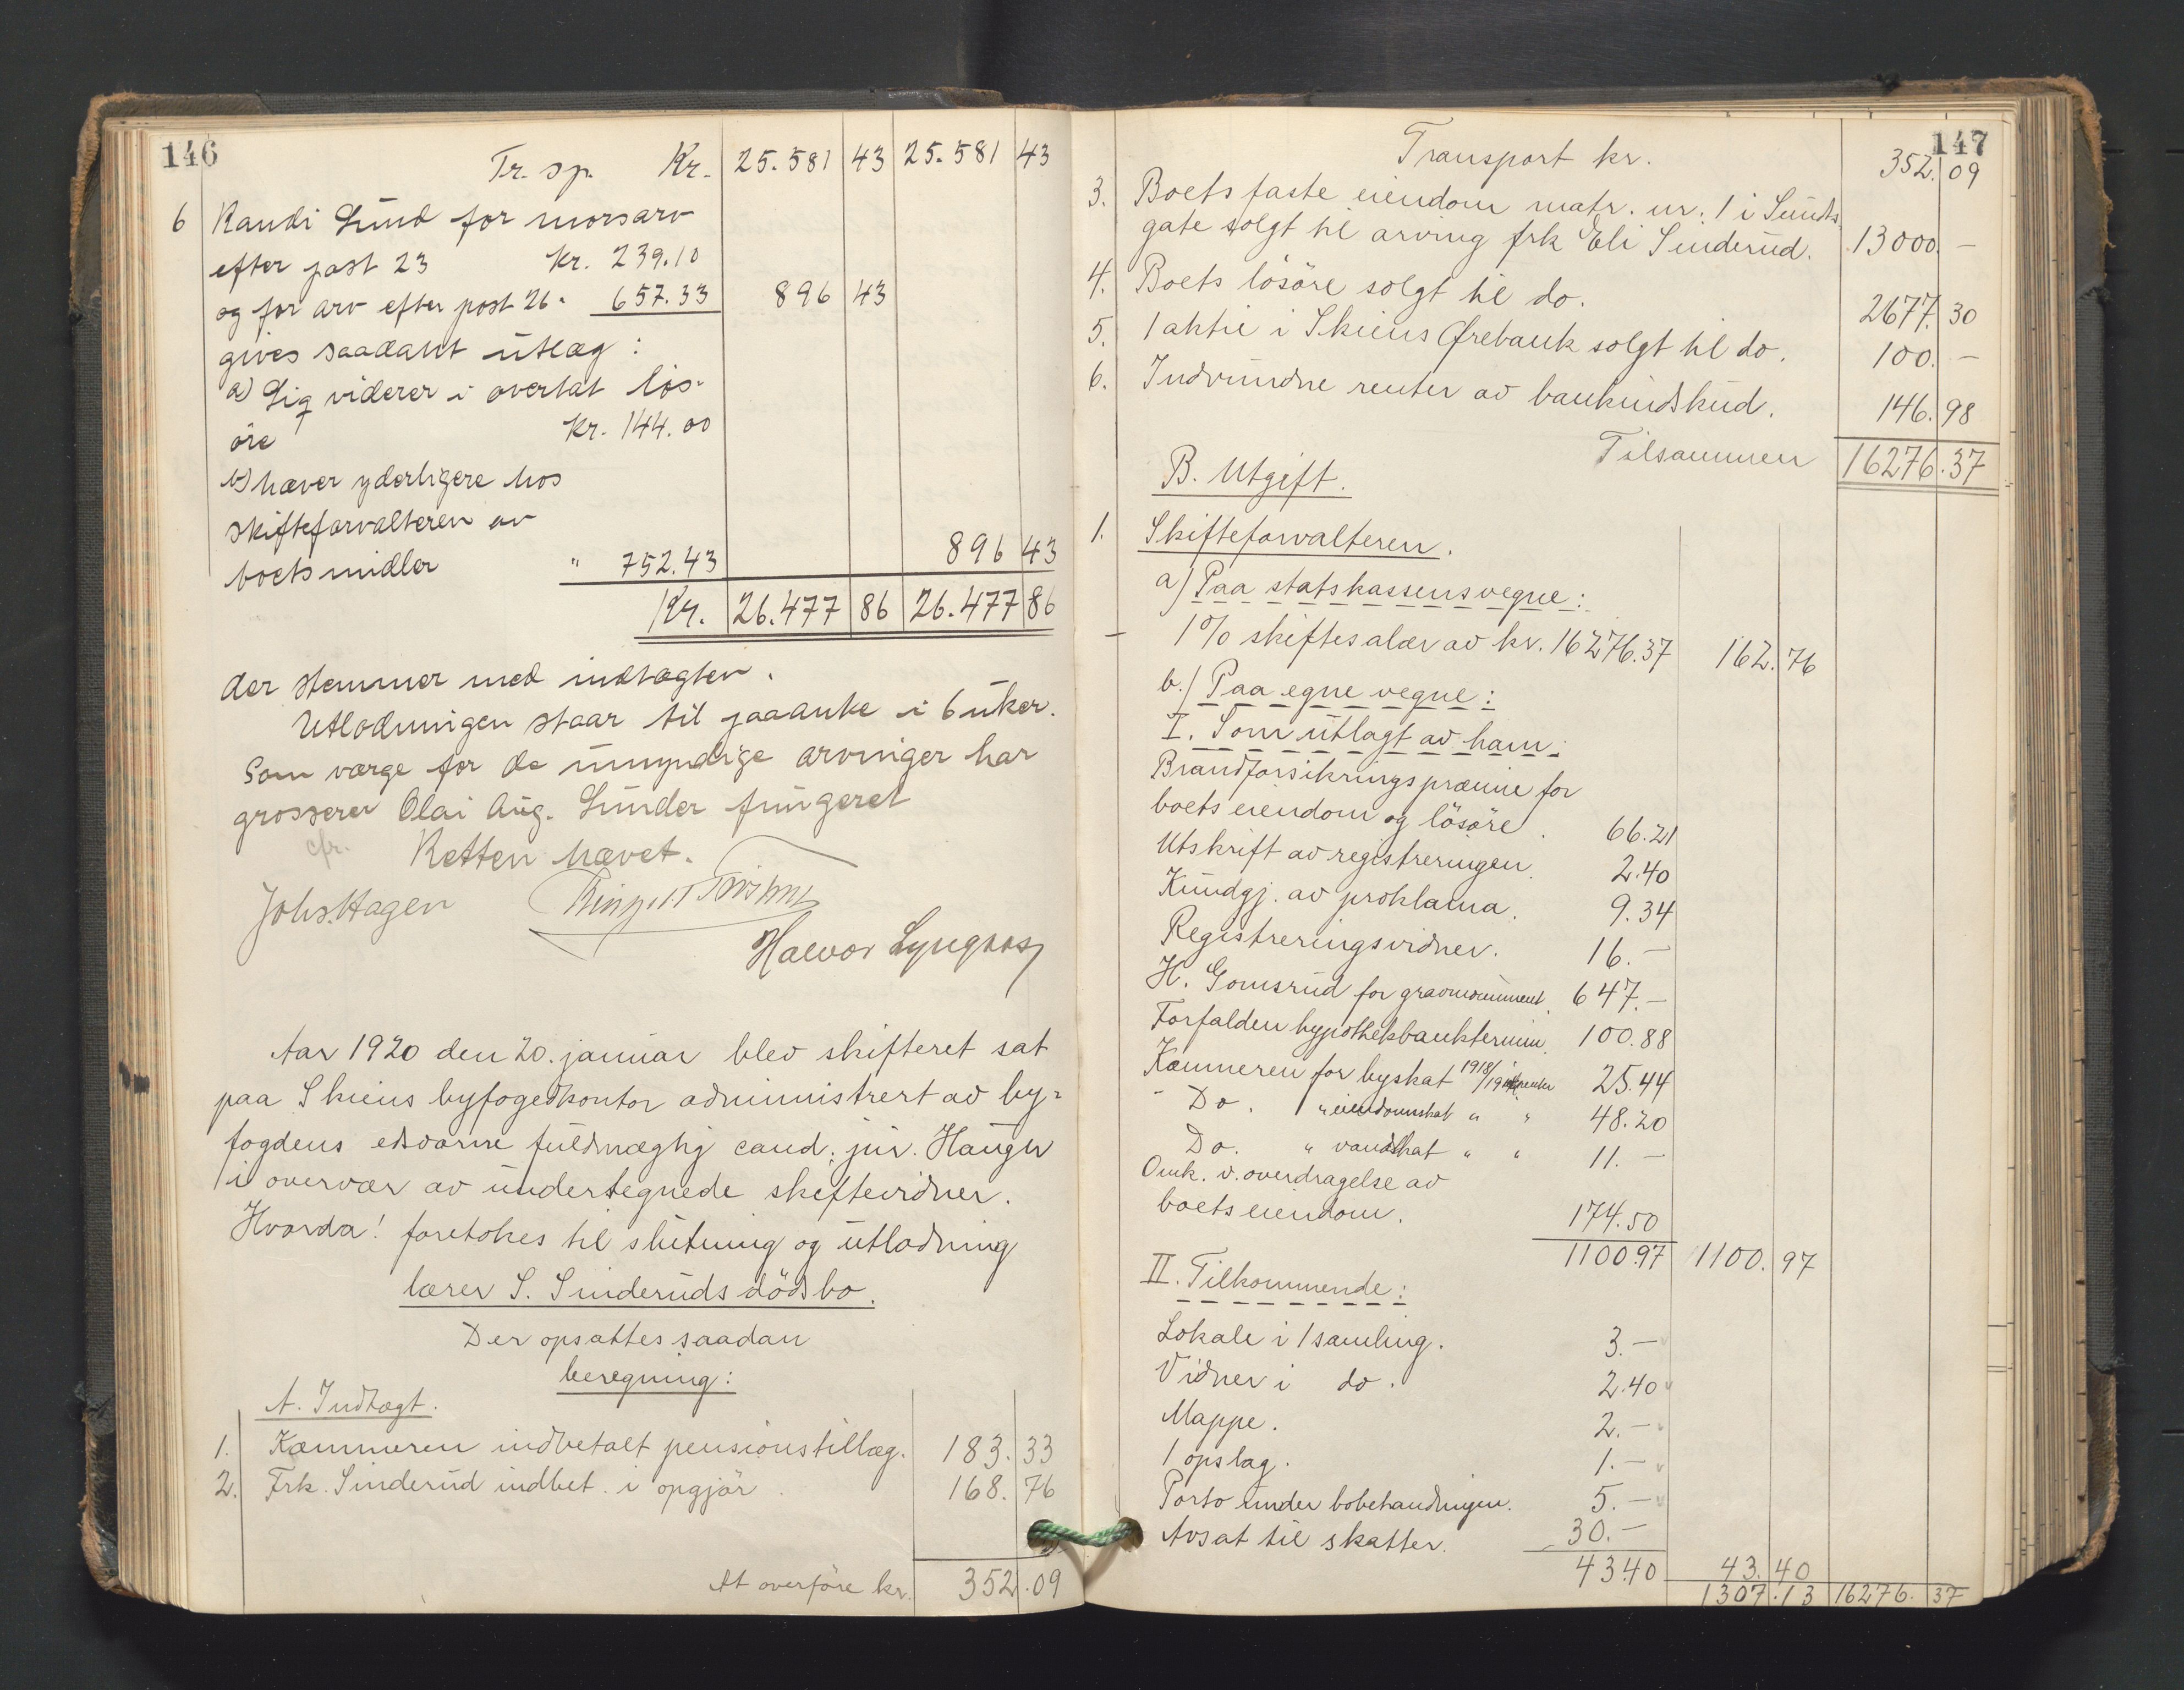 146
Tr. sp. Kr. 25.581 43 25.581 43
6 Randi Lund for morsarv
efter post 23 kr. 239.10
og for arv efter post 26 " 657.33 896 43
gives saadant utlæg:
a) Lig viderer i overtat løs-
øre kr. 144.00
b) hæver yderligere hos
skifteforvalteren av
boets midler " 752.43 896 43
Kr. 26.477 86 26.477 86
der stemmer med indtægten.
Utlodningen staar til paaanke i 6 uker.
Som værge for de umyndige arvinger har
grosserer Olai Aug. Lunder fungeret
cfr. Retten hævet.
Johs. Hagen
Halvor Lyngaas
Aar 1920 den 20. januar blev skifteret sat
paa Skiens byfogedkontor administrert av by=
fogdens edsvorne fuldmægtig cand. jur. Haugen
i overvær av undertegnede skiftevidner.
Hvorda! foretokes til slutning og utlodning
lærer S. Sinderuds dödsbo.
Der opsattes saadan
beregning:
A. Indtægt.
1. Kæmneren indbetalt pensionstillæg. 183. 33
2. Frk. Sinderud indbet. i opgjör. 168. 76
At overföre kr. 352.09
147
Transport kr. 352. 09
3. Boets faste eiendom matr. nr. 1 i Sunds
gate solgt til arving frk Eli Sinderud. 13000. —
4. Boets lösöre solgt til do. 2677. 30
5. 1 aktie i Skiens Ørebank solgt til do. 100. —
6. Indvundne renter av bankindskud. 146. 98
Tilsammen 16276.37
B. Utgift.
1. Skifteforvalteren.
a) Paa statskassens vegne:
1% skiftesalær av kr. 16276.37 162. 76
b.) Paa egne vegne:
I. Som utlagt av ham:
Brandforsikringspræmie for
boets eiendom og lösöre. 66.21
Utskrift av registreringen. 2.40
Kundgj. av proklama. 9.34
Registreringsvidner. 16.—
H. Gomsrud for gravmonument. 647.—
Forfalden hypothekbanktermin. 100.88
Kæmneren for byskat 1918/19 25.44
Do. " eiendomskat " " 48.20
Do. " vandskat " " 11.—
Omk. v. overdragelse av
boets eiendom. 174.50
1100.97 1100. 97
II. Tilkommende:
Lokale i 1 samling. 3.—
Vidner i do. 2.40
Mappe. 2.—
1 opslag. 1.—
Porto under bobehandlingen. 5.—
Avsat til skatter. 30.—
43.40 43. 40
1307.13 16276. 37